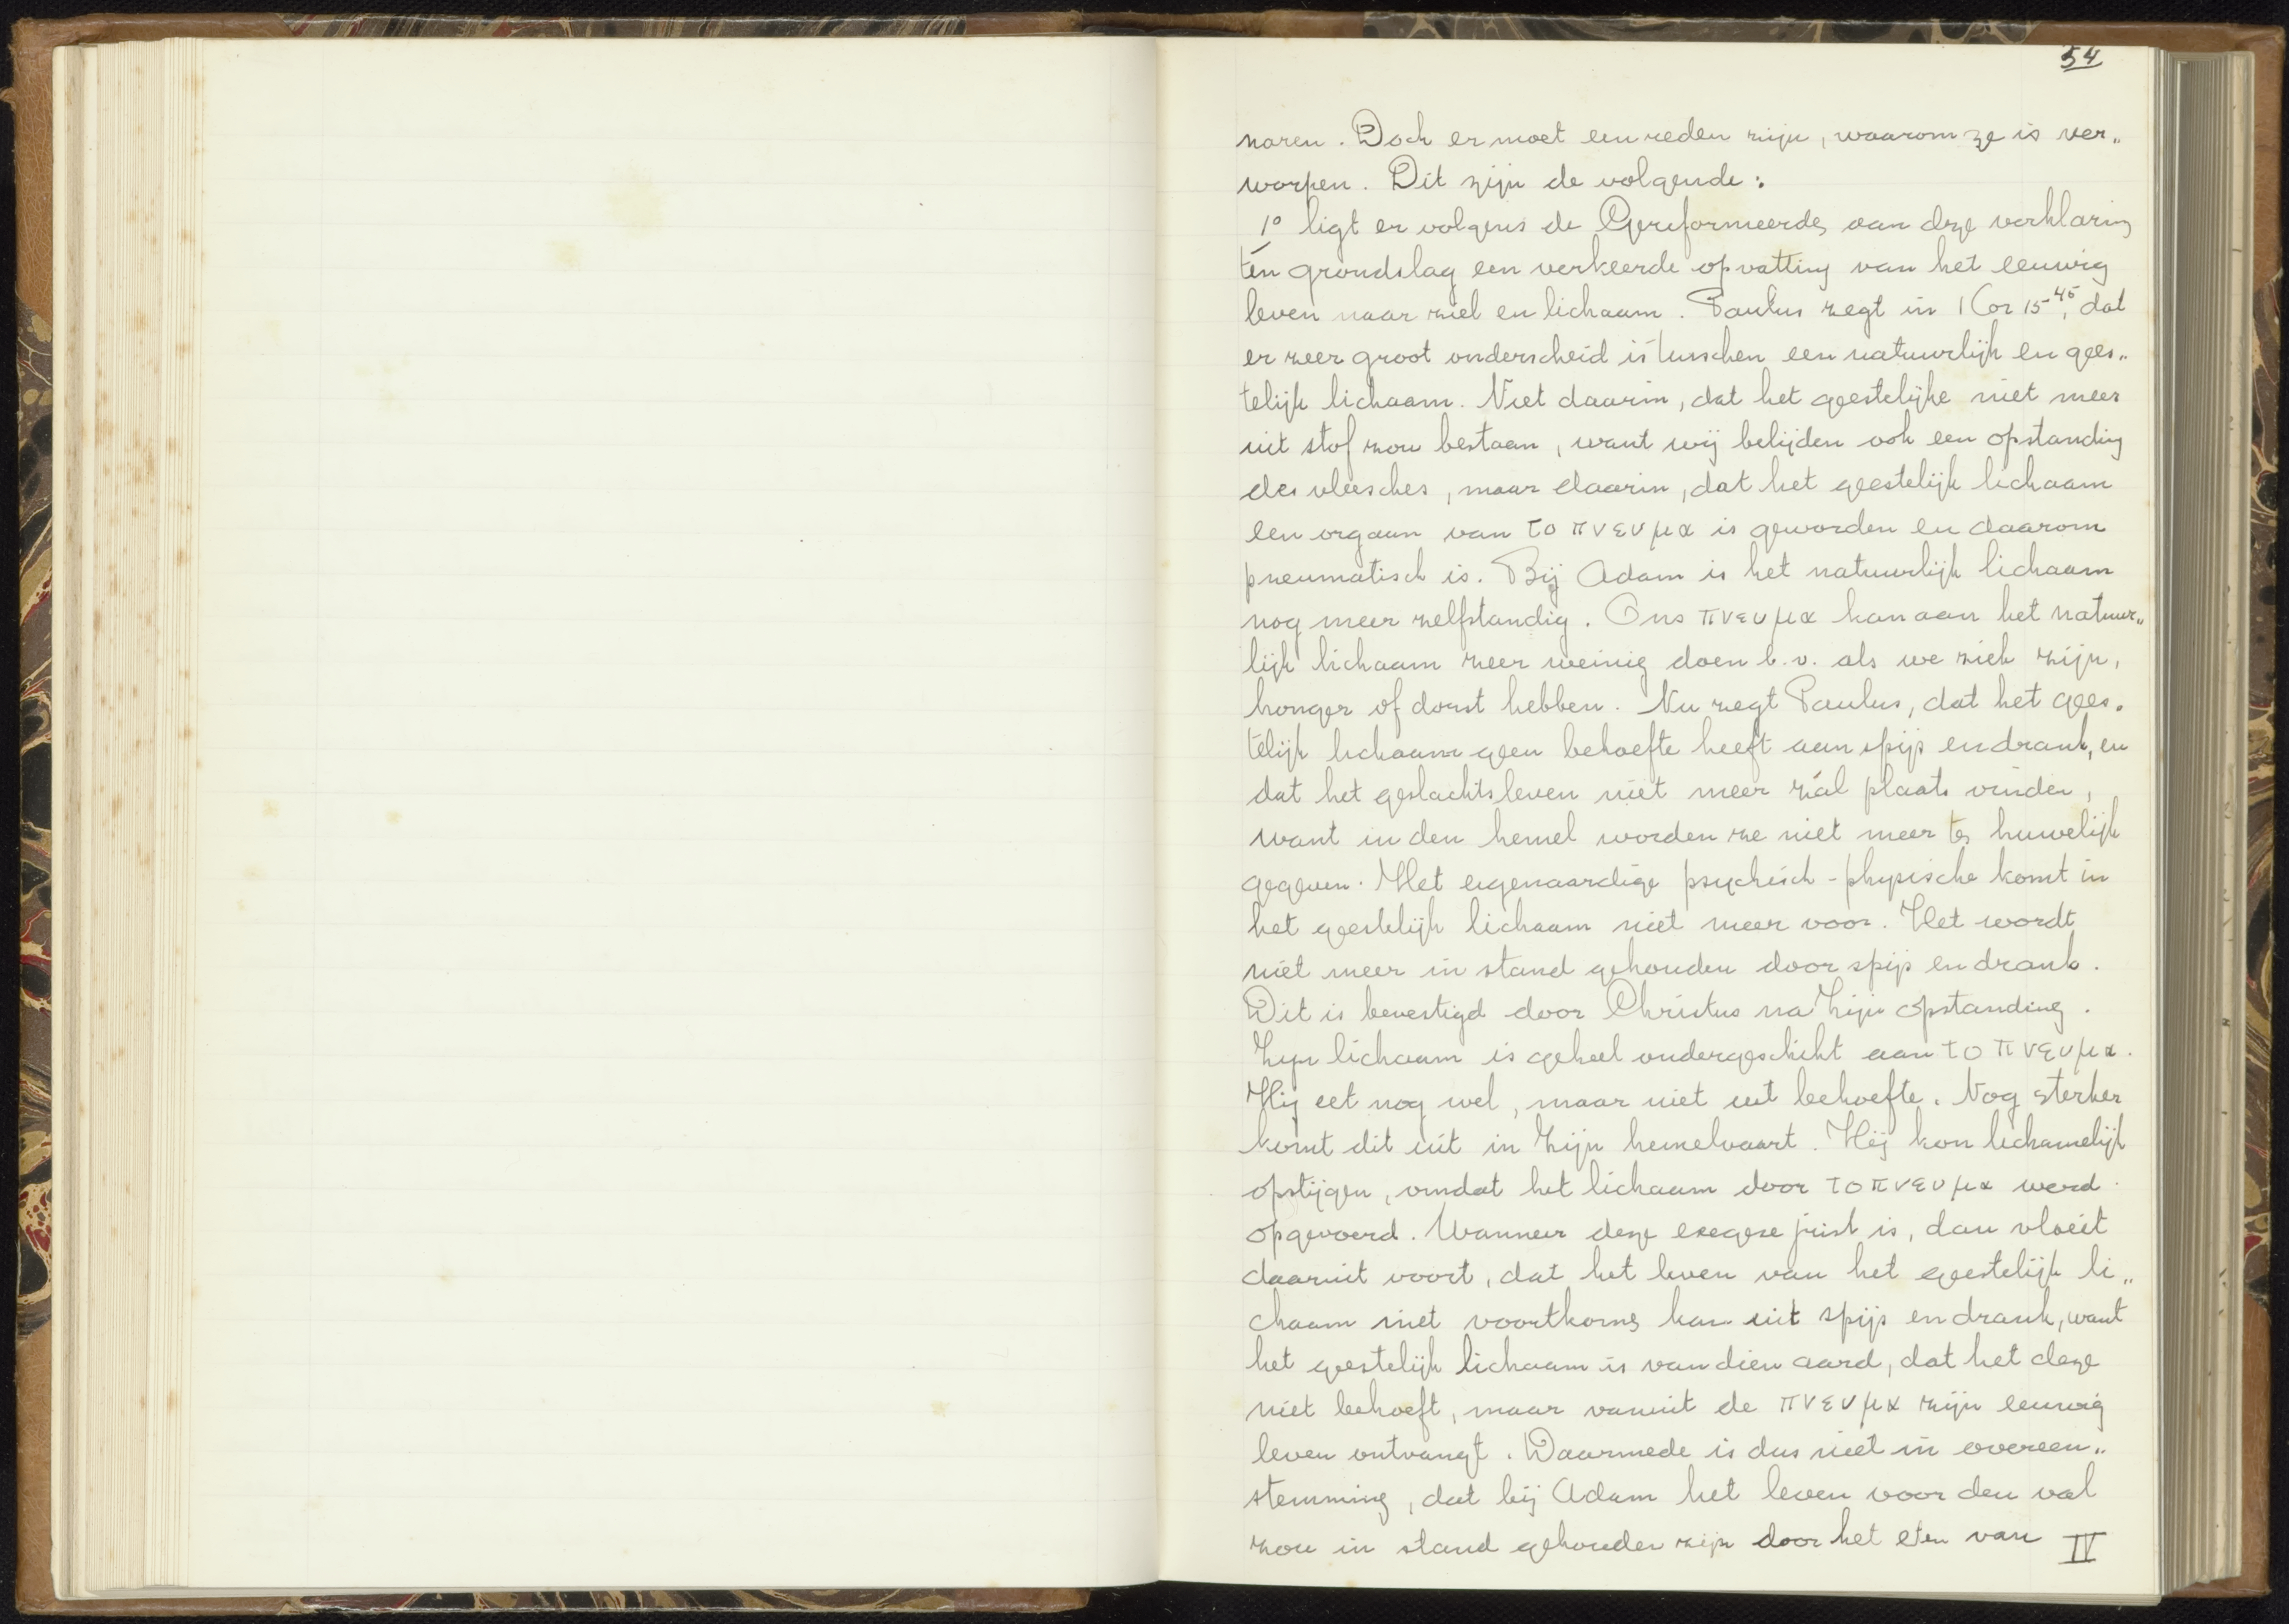 54
naren. Doch er moet een reden zijn, waarom ze is ver„
worpen. Dit zijn de volgende:
1° ligt er volgens de Gereformeerden aan deze verklaring
ten grondslag een verkeerde opvatting van het eeuwig
leven naar ziel en lichaam. Paulus zegt in 1 Cor 15⁴⁵, dat
er zeer groot onderscheid is tusschen een natuurlijk en gees„
telijk lichaam. Niet daarin, dat het geestelijke niet meer
uit stof zou bestaan, want wij belijden ook een opstanding
des vleesches, maar daarin, dat het geestelijk lichaam
een orgaan van το πνευμα is geworden en daarom
pneumatisch is. Bij Adam is het natuurlijk lichaam
nog meer zelfstandig. Ons πνευμα kan aan het natuur„
lijk lichaam zeer weinig doen b.v. als we ziek zijn,
honger of dorst hebben. Nu zegt Paulus, dat het gees„
telijk lichaam geen behoefte heeft aan spijs en drank, en
dat het geslachtsleven niet meer zal plaats vinden,
want in den hemel worden ze niet meer ten huwelijk
gegeven. Het eigenaardige psychisch-physische komt in
het geestelijk lichaam niet meer voor. Het wordt
niet meer in stand gehouden door spijs en drank.
Dit is bevestigd door Christus na Zijn opstanding.
Zijn lichaam is geheel ondergeschikt aan το πνευμα.
Hij eet nog wel, maar niet uit behoefte. Nog sterker
komt dit uit in Zijn hemelvaart. Hij kon lichamelijk
opstijgen, omdat het lichaam door το πνευμα werd
opgevoerd. Wanneer deze exegese juist is, dan vloeit
daaruit voort, dat het leven van het geestelijk li„
chaam niet voortkomen kan uit spijs en drank, want
het geestelijk lichaam is van dien aard, dat het deze
niet behoeft, maar vanuit de πνευμα zijn eeuwig
leven ontvangt. Daarmede is dus niet in overeen„
stemming, dat bij Adam het leven voor den val
zou in stand gehouden zijn door het eten van IV